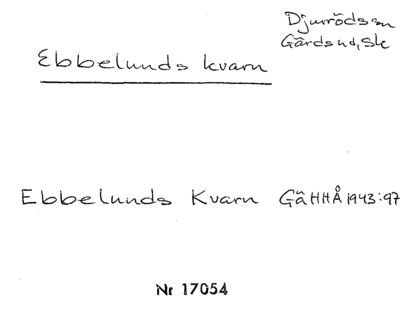 Djurröds sn
Gärds hd, Sk
Ebbelunds kvarn
Ebbelunds Kvarn GäHHÅ 1943:97
Nr 17054